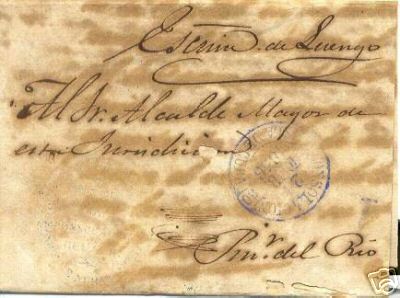 Escnia. de Luengo
Al Sr. Alcalde Mayor de
esta Jurisdicion
Pinr. del Rio
ebY